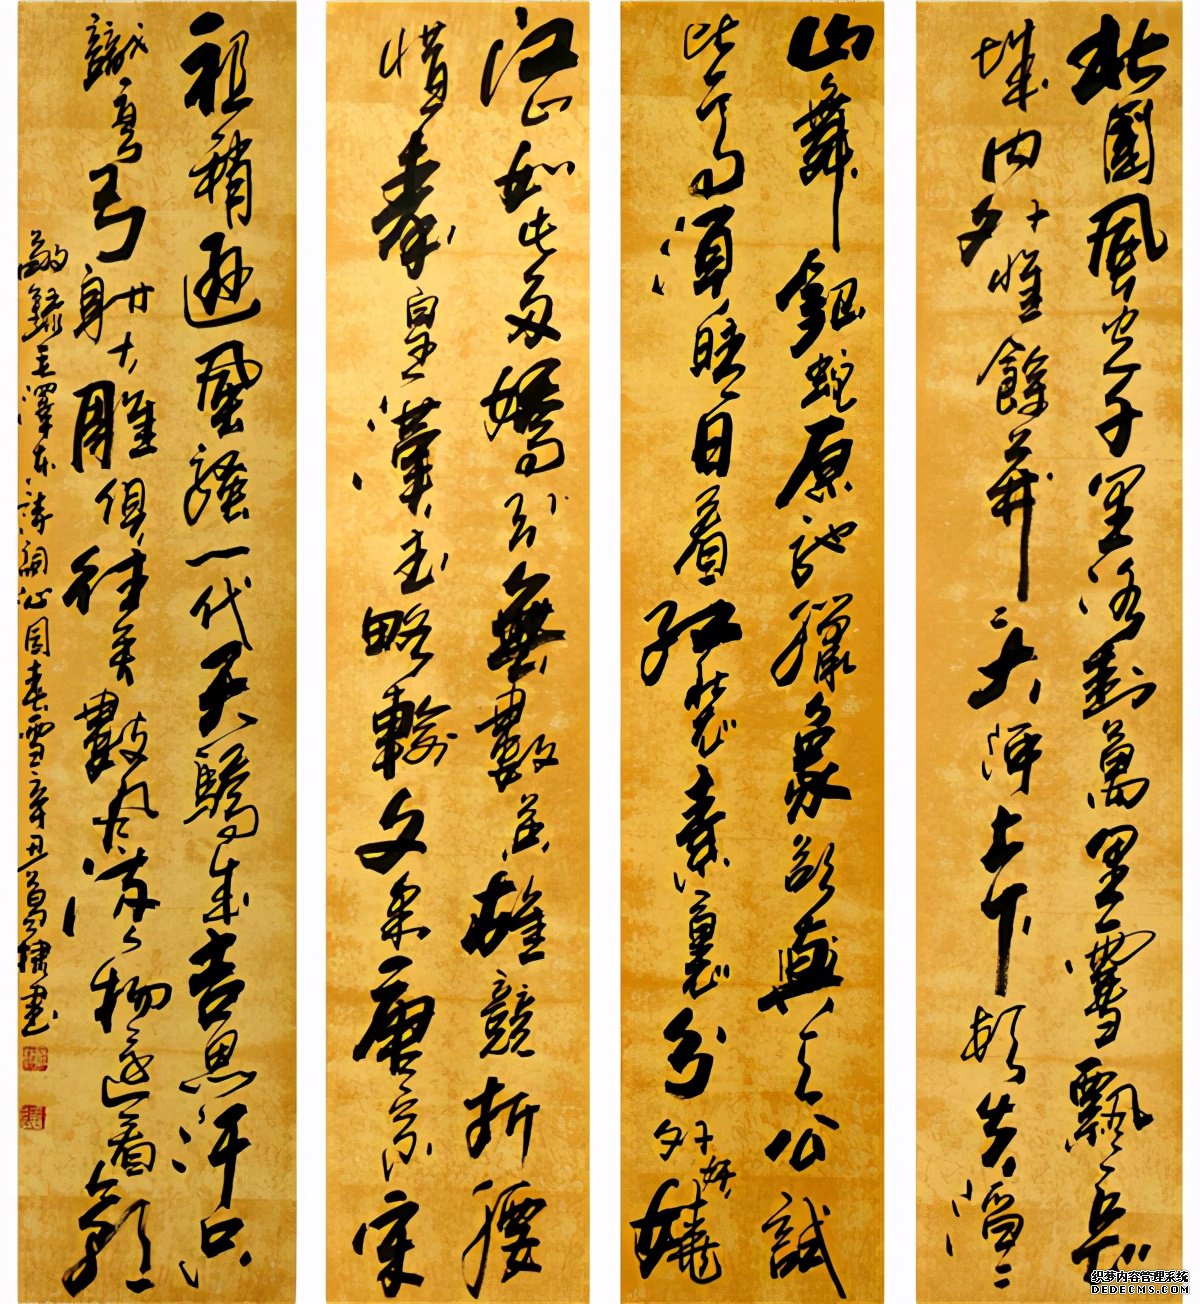 北國風光千里冰封萬里雪飄望長
城内外惟餘莽〻大河上下頓失滔〻
山舞銀蛇原馳蠟象欲與天公試
比高須晴日看紅裝素裹分外妖嬈
江山如此多嬌引無數英雄競折腰
惜秦皇漢武略輸文采唐宗宋
祖稍遜風騷一代天驕成吉思汗只
識彎弓射大雕俱往矣數風流人物還看今朝
敬錄毛澤東詩詞沁園春雪辛丑葛棣書
织梦内容管理系统
DEDECMS.COM